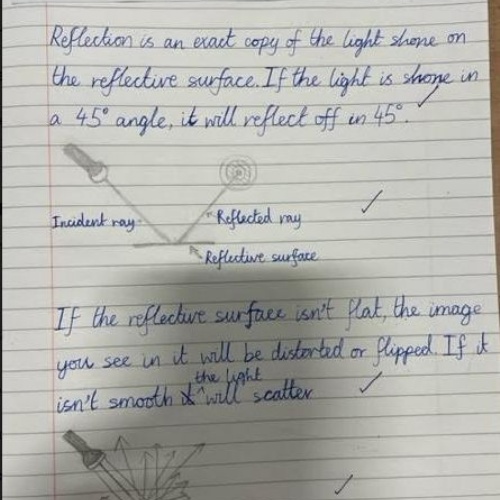 Reflection is an exact copy of the light shone on
the reflective surface. If the light is shone in
a 45° angle, it will reflect off in 45°.
Incident ray
Reflected ray
Reflective surface
If the reflective surface isn't flat, the image
you see in it will be distorted or flipped. If it
the light
isn't smooth will scatter